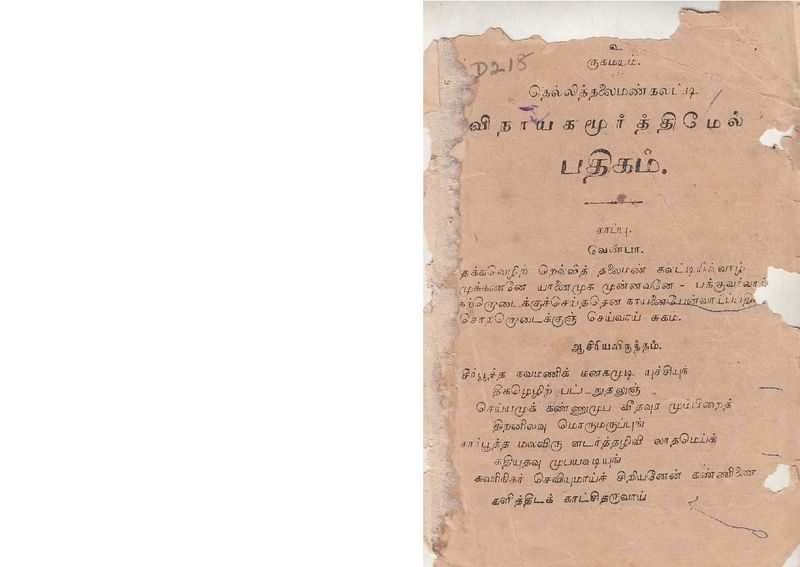 உ
குகமயம்.
D218
தெல்லித்தலைமண்கலட்டி
விநாயகமூர்த்திமேல்
பதிகம்.
காப்பு.
வெண்பா.
தக்கவெழிற் றெல்லித் தலைமண் கலட்டியில்வாழ்
முக்கணனே யானைமுக முன்னவனே -
சொற்றொடைக்குஞ் செய்வாய் சுகம்.
ஆசிரியவிருத்தம்.
சீர்பூத்த நவமணிக் கனகமுடி யுச்சியுந்
திகழெழிற் பட்டநுதலுஞ்
செய்யமுக் கண்ணுமுப வீதவுர மும்பிறைத்
திறனிலவு மொருமருப்புங்
கார்பூத்த மலவிரு ளடர்த்தழிவி லாதமெய்க்
கதியுதவு முபயவடியுங்
கவரிநிகர் செவியுமாய்ச் சிறியனேன் கண்ணிணை
களித்திடக் காட்சிதருவாய்